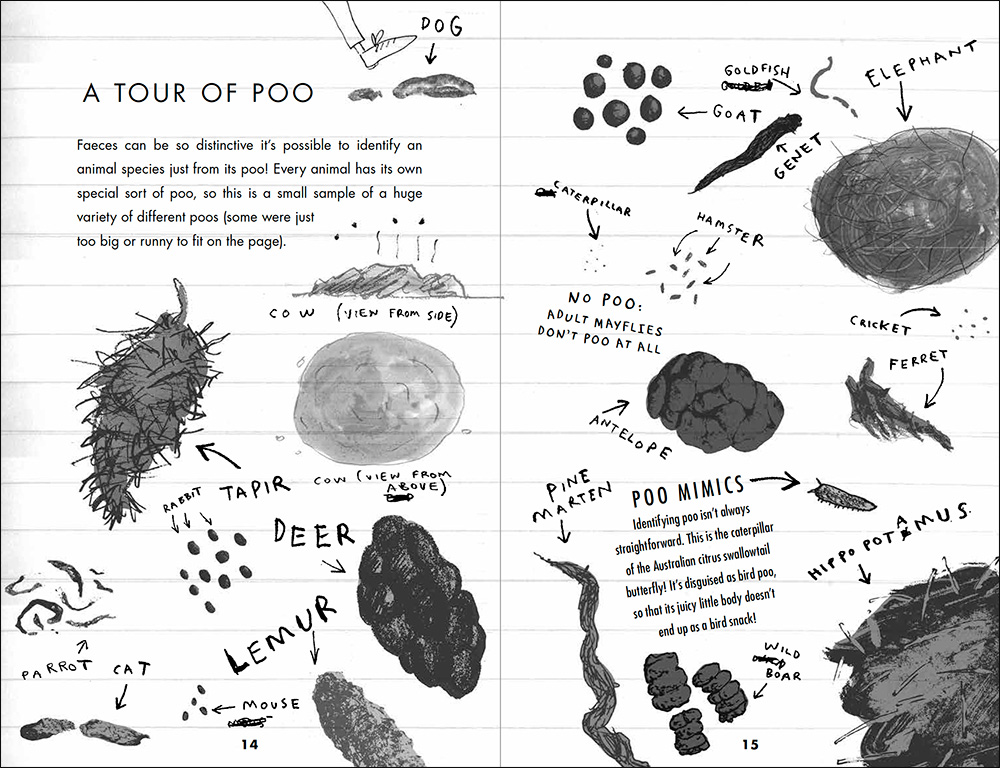 DOG
A TOUR OF POO
Faeces can be so distinctive it's possible to identify an
animal species just from its poo! Every animal has its own
special sort of poo, so this is a small sample of a huge
variety of different poos (some were just
too big or runny to fit on the page).
COW (VIEW FROM SIDE)
COW (VIEW FROM
ABOVE)
TAPIR
RABBIT
DEER
LEMUR
PARROT
CAT
MOUSE
14
GOLDFISH
GOAT
GENET
ELEPHANT
CATERPILLAR
HAMSTER
NO POO:
ADULT MAYFLIES
DON'T POO AT ALL
CRICKET
FERRET
ANTELOPE
PINE
MARTEN
POO MIMICS
Identifying poo isn't always
straightforward. This is the caterpillar
of the Australian citrus swallowtail
butterfly! It's disguised as bird poo,
so that its juicy little body doesn't
end up as a bird snack!
HIPPOPOTAMUS
WILD
BOAR
15